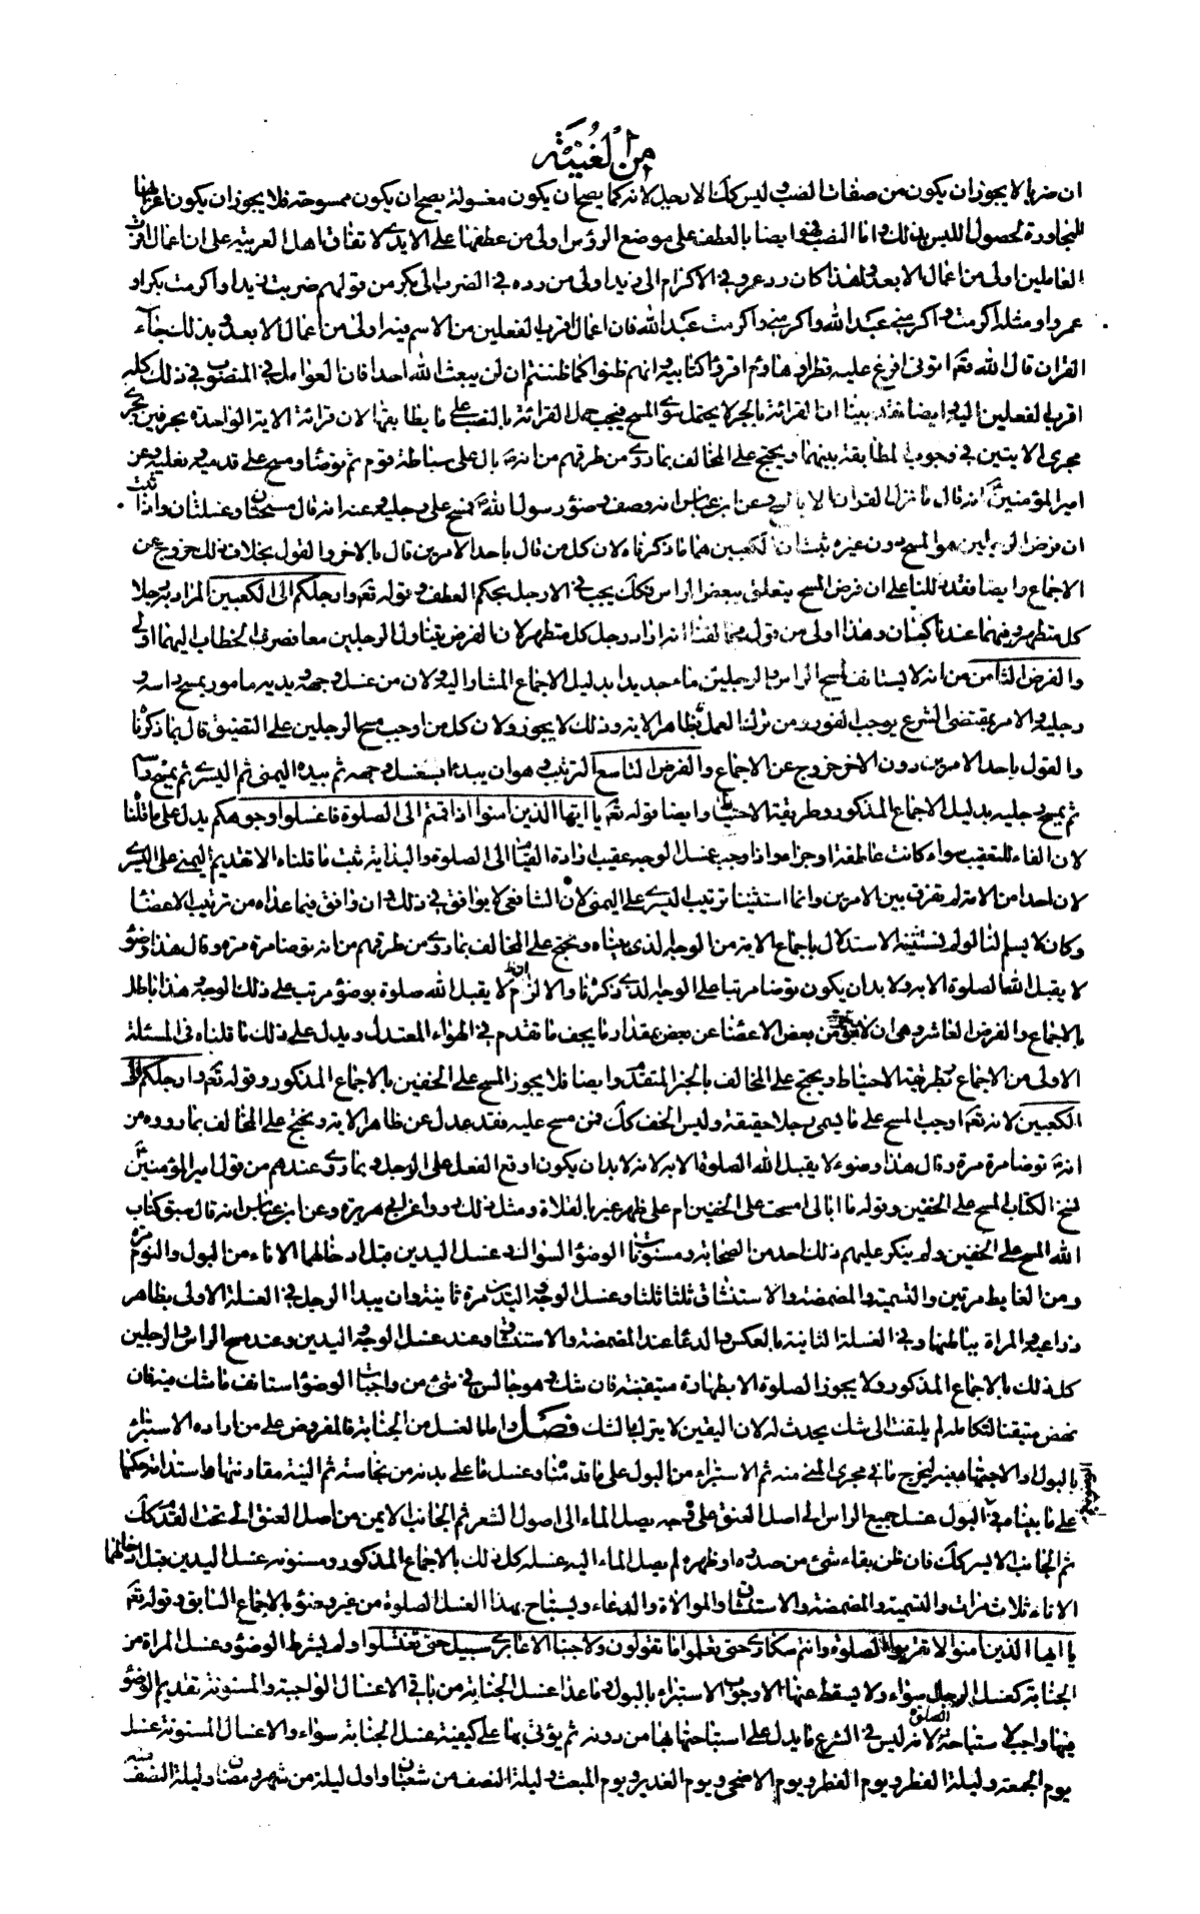 من الغنية
ان ضربا لا يجوز ان يكون من صفات الضب وليس كك الارجل لانه كما يصح ان يكون مغسولة يصح ان يكون ممسوحة فلا يجوز ان يكون اعرابها
للمجاورة لحصول اللبس بذلك واما النصب فهو ايضا بالعطف على موضع الرؤس اولى من عطفها على الايدى لاتفاق اهل العربية على ان اعمال اقرب
العاملين اولى من اعمال الابعد ولهذا كان رد عمرو في الاكرام الى زيد اولى من رده في الضرب الى بكر من قولهم ضربت زيدا واكرمت بكرا و
عمروا ومثله اكرمت واكرمنى عبد الله واكرمنى واكرمت عبد الله فان اعمال اقرب الفعلين من الاسم فيه اولى من اعمال الابعد وبذلك جآء
القران قال الله تعه اتونى افرغ عليه قطرا وهاؤم اقرؤا كتابيه وانهم ظنوا كما ظننتم ان لن يبعث الله احدا فان العوامل في المنصوب في ذلك كله
اقرب الفعلين اليه وايضا فقد بينا ان القرائة بالجر لا يحتمل سوى المسح فيجب حمل القرائة بالنصب على ما يطابقها لان قرائة الاية الواحدة بحرفين يجرى
مجرى الايتين في وجوب المطابقة بينهما ويحتج على المخالف بما روى من طرقهم من انه بال على سباطة قوم ثم توضا ومسح على قدميه ونعليه وعن
امير المؤمنين انه قال ما نزل القران الا بالمسح وعن ابن عباس انه وصف وضوء رسول الله فمسح على رجليه وعنه انه قال مسحتان وغسلتان واذا ثبت
ان فرض الرجلين هو المسح دون غيره ثبت ان الكعبين هما ما ذكرناه لان كل من قال باحد الامرين قال بالاخر والقول بخلاف ذلك خروج عن
الاجماع وايضا فقد دللنا على ان فرض المسح يتعلق ببعض الراس فكك يجب في الارجل بحكم العطف وقوله تعه وارجلكم الى الكعبين المراد به رجلا
كل متطهر وفيهما عندنا كعبان وهذا اولى من قول مخالفنا انه اراد رجل كل متطهر لان الفرض يتناول الرجلين معا فصرف الخطاب اليهما اولى
والفرض الثامن من انه لا يستانف لمسح الراس والرجلين ماء جديدا بدليل الاجماع المشار اليه ولان من غسل وجهه ويديه مامور بمسح راسه و
رجليه والامر بمقتضى الشرع يوجب الفور ومن ترك العمل بظاهر الاية وذلك لا يجوز ولان كل من اوجب مسح الرجلين على التضيق قال بما ذكرنا
والقول باحد الامرين دون الاخر خروج عن الاجماع والفرض التاسع الترتيب وهو ان يبدء بغسل وجهه ثم بيده اليمنى ثم اليسرى ثم يمسح راسه
ثم يمسح رجليه بدليل الاجماع المذكور وطريقة الاحتياط وايضا قوله تعه يا ايها الذين امنوا اذا قمتم الى الصلوة فاغسلوا وجوهكم يدل على ما قلنا
لان الفاء للتعقيب سواء كانت عاطفة او جزاء واذا وجب غسل الوجه عقيب ارادة القيام الى الصلوة والبداية ثبت ما قلناه الا تقديم اليمنى على اليسرى
لان احدا من الامة لم يفرق بين الامرين وانما استثنينا ترتيب اليسرى على اليمنى لان الشافعى لا يوافق في ذلك وان وافق فيما عداه من ترتيب الاعضا
وكان لا يسلم لنا لو لم نستثنه الاستدلال باجماع الامة من الوجه الذى بيناه ويحتج على المخالف بما روى من طرقهم من انه توضا مرة مرة وقال هذا وضوء
لا يقبل الله الصلوة الا به ولا بد ان يكون توضا مرتبا على الوجه الذى ذكرنا والا لزم ان لا يقبل الله صلوة بوضوء مرتب على ذلك الوجه وهذا باطل
بالاجماع والفرض العاشر وهى ان لا يؤخر بعض الاعضا عن بعض بمقدار ما يجف ما تقدم في الهواء المعتدل ويدل على ذلك ما قلناه فى المسئلة
الاولى من الاجماع وطريقة الاحتياط ويحتج على المخالف بالخبر المتقدم وايضا فلا يجوز المسح على الخفين بالاجماع المذكور وقوله تعه وارجلكم الى
الكعبين لانه تعه اوجب المسح على ما يسمى رجلا حقيقة وليس الخف كك فمن مسح عليه فقد عدل عن ظاهر الاية ويحتج على المخالف بما رووه من
انه توضا مرة مرة وقال هذا وضوء لا يقبل الله الصلوة الا به لانه لا بد ان يكون اوقع الفعل على الرجل وبما روى عندهم من قول امير المؤمنين
نسخ الكتاب المسح على الخفين وقوله ما ابالى امسحت على الخفين ام على ظهر عير بالفلاة ومثل ذلك رووا عن ابى هريرة وعن ابن عباس انه قال سبق كتاب
الله المسح على الخفين ولم ينكر عليهم ذلك احد من الصحابة ومسنونات الوضوء السواك وغسل اليدين قبل ادخالهما الاناء من البول والنوم مرة
ومن الغايط مرتين والتسمية والمضمضة والاستنشاق ثلثا ثلثا وغسل الوجه واليدين مرة ثانية وان يبدا الرجل في الغسلة الاولى بظاهر
ذراعيه والمراة بباطنهما وفي الغسلة الثانية بالعكس والدعا عند المضمضة والاستنشاق وعند غسل الوجه واليدين وعند مسح الراس والرجلين
كل ذلك بالاجماع المذكور ولا يجوز الصلوة الا بطهارة متيقنة فان شك وهو جالس في شئ من واجبات الوضوء استانف ما شك فيه فان
نهض متيقنا لتكامله لم يلتفت الى شك يحدث له لان اليقين لا يترك بالشك فصل واما الغسل من الجنابة فالمفروض على من اراده الاستبراء
بالبول والاجتهاد فيه ليخرج ما في مجرى المنى منه ثم الاستبراء من البول على ما قدمناه وغسل ما على بدنه من نجاسة ثم النية مقارنتها واستدامة حكمها
على ما بيناه في البول غسل جميع الراس الى اصل العنق على وجه يصل الماء الى اصول الشعر ثم الجانب الايمن من اصل العنق الى تحت القدم كك
ثم الجانب الايسر كك فان ظن بقاء شئ من صدره او ظهره لم يصل الماء اليه غسله كل ذلك بالاجماع المذكور ومسنونه غسل اليدين قبل ادخالهما
الاناء ثلاث مرات والتسمية والمضمضة والاستنشاق والموالاة والدعاء ويستباح بهذا الغسل الصلوة من غير وضوء بالاجماع السابق وقوله تعه
يا ايها الذين امنوا لا تقربوا الصلوة وانتم سكارى حتى تعلموا ما تقولون ولا جنبا الا عابرى سبيل حتى تغتسلوا ولم يشرط الوضوء وغسل المراة من
الجنابة كغسل الرجل سواء ولا يسقط عنها الا وجوب الاستبراء بالبول وما عدا غسل الجنابة من باقى الاغسال الواجبة والمسنونة تقديم الوضوء
فيها واجب لاستباحة الصلوة لانه ليس في الشرع ما يدل على استباحتها بها من دونه ثم يؤتى بها على كيفية غسل الجنابة سواء والاغسال المسنونة غسل
يوم الجمعة وليلة الفطر ويوم الفطر ويوم الاضحى ويوم الغدير ويوم المبعث وليلة النصف من شعبان واول ليلة من شهر رمضان وليلة النصف منه